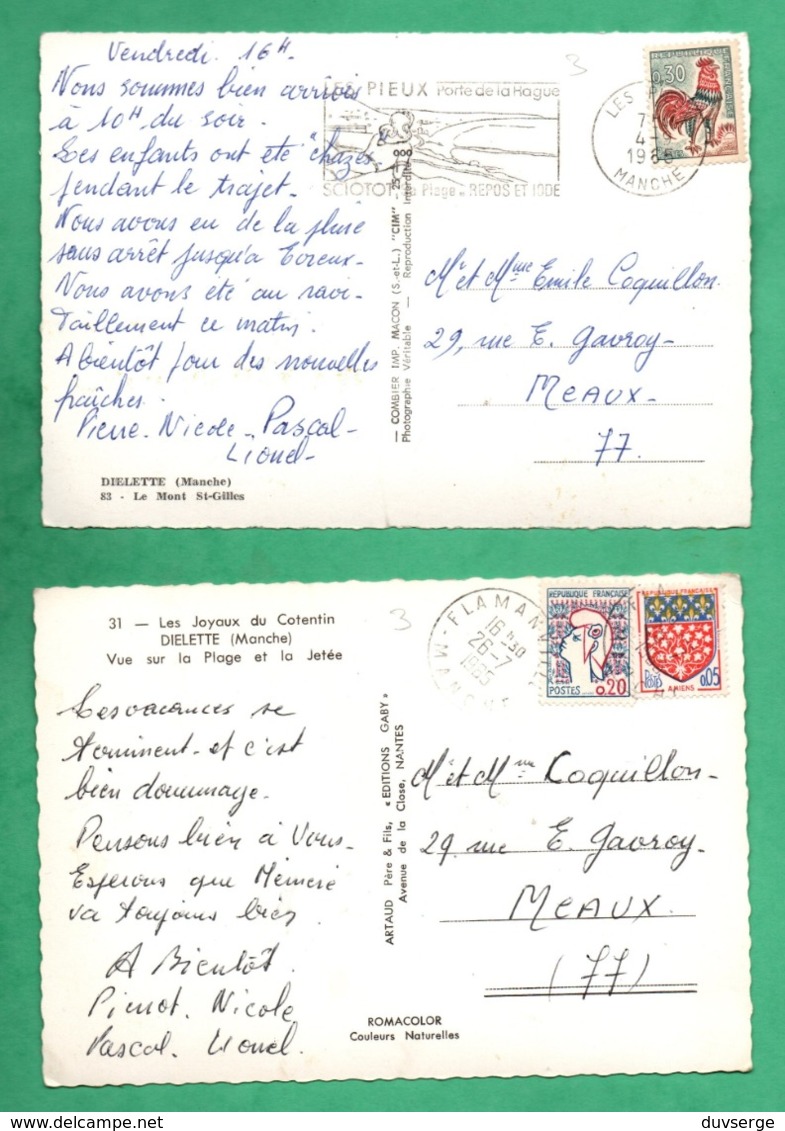 Vendredi. 16H.
Nous sommes bien arrivés
à 10H du soir.
Les enfants ont été "chazes"
pendant le trajet.
Nous avons eu de la pluie
sans arrêt jusqu'à Evreux.
Nous avons été au ravi-
taillement ce matin.
A bientôt pour des nouvelles
fraîches.
Pierre. Nicole. Pascal-
Lionel-
DIELETTE (Manche)
83 - Le Mont St-Gilles
LES PIEUX Porte de la Hague
SCIOTOT sa Plage = REPOS ET IODE
— COMBIER IMP. MACON (S.-et-L.) "CIM" -
Photographie Véritable — Reproduction Interdite
3
LES
1965
MANCHE
REPUBLIQUE FRANÇAISE
0,30
Mr et Mme Emile Coquillon.
29, rue E. Gavroy-
MEAUX-
77.
31 — Les Joyaux du Cotentin
DIELETTE (Manche)
Vue sur la Plage et la Jetée
Les vacances se
terminent- et c'est
bien dommage-
Pensons bien à Vous-
Espérons que Mémère
va toujours bien
A Bientôt.
Pierrot. Nicole
Pascal. Lionel.
ARTAUD Père & Fils, « EDITIONS GABY »
Avenue de la Close, NANTES
ROMACOLOR
Couleurs Naturelles
3
FLAMANVILLE
16H30
26-7
1965
MANCHE
REPUBLIQUE FRANÇAISE
POSTES 0,20
REPUBLIQUE FRANÇAISE
POSTES
AMIENS
0,05
Mr et Mme Coquillon-
29 rue E. Gavroy-
MEAUX.
(77)
duvserge